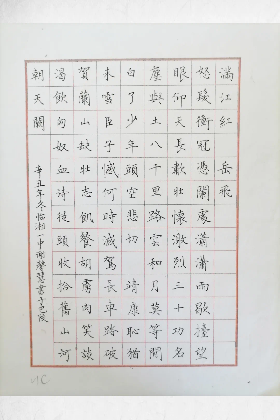 滿江紅 岳飛
怒髮衝冠憑闌處瀟瀟雨歇擡望
眼仰天長歗壯懷激烈三十功名
塵與土八千里路雲和月莫等閒
白了少年頭空悲切 靖康恥猶
未雪臣子憾何時滅駕長車踏破
賀蘭山缺壯志飢餐胡虜肉笑談
渴飲匈奴血待從頭收拾舊山河
朝天闕
辛丑年冬臨湘一中書于巴陵